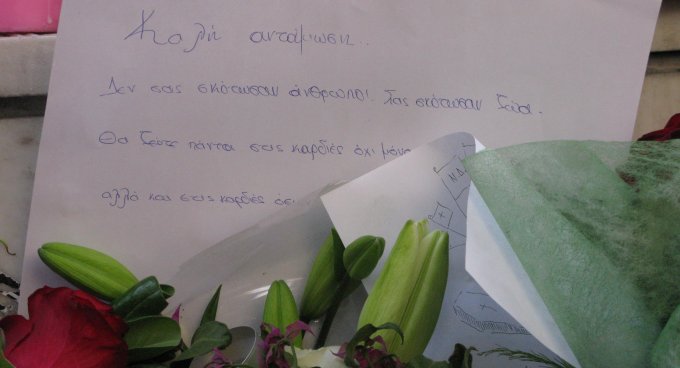 Καλή αντάμωση..
Δεν σας σκότωσαν άνθρωποι. Σας σκότωσαν ζώα.
Θα ζείτε πάντα στις καρδιές όχι μόνο
αλλά και στις καρδιές όσ